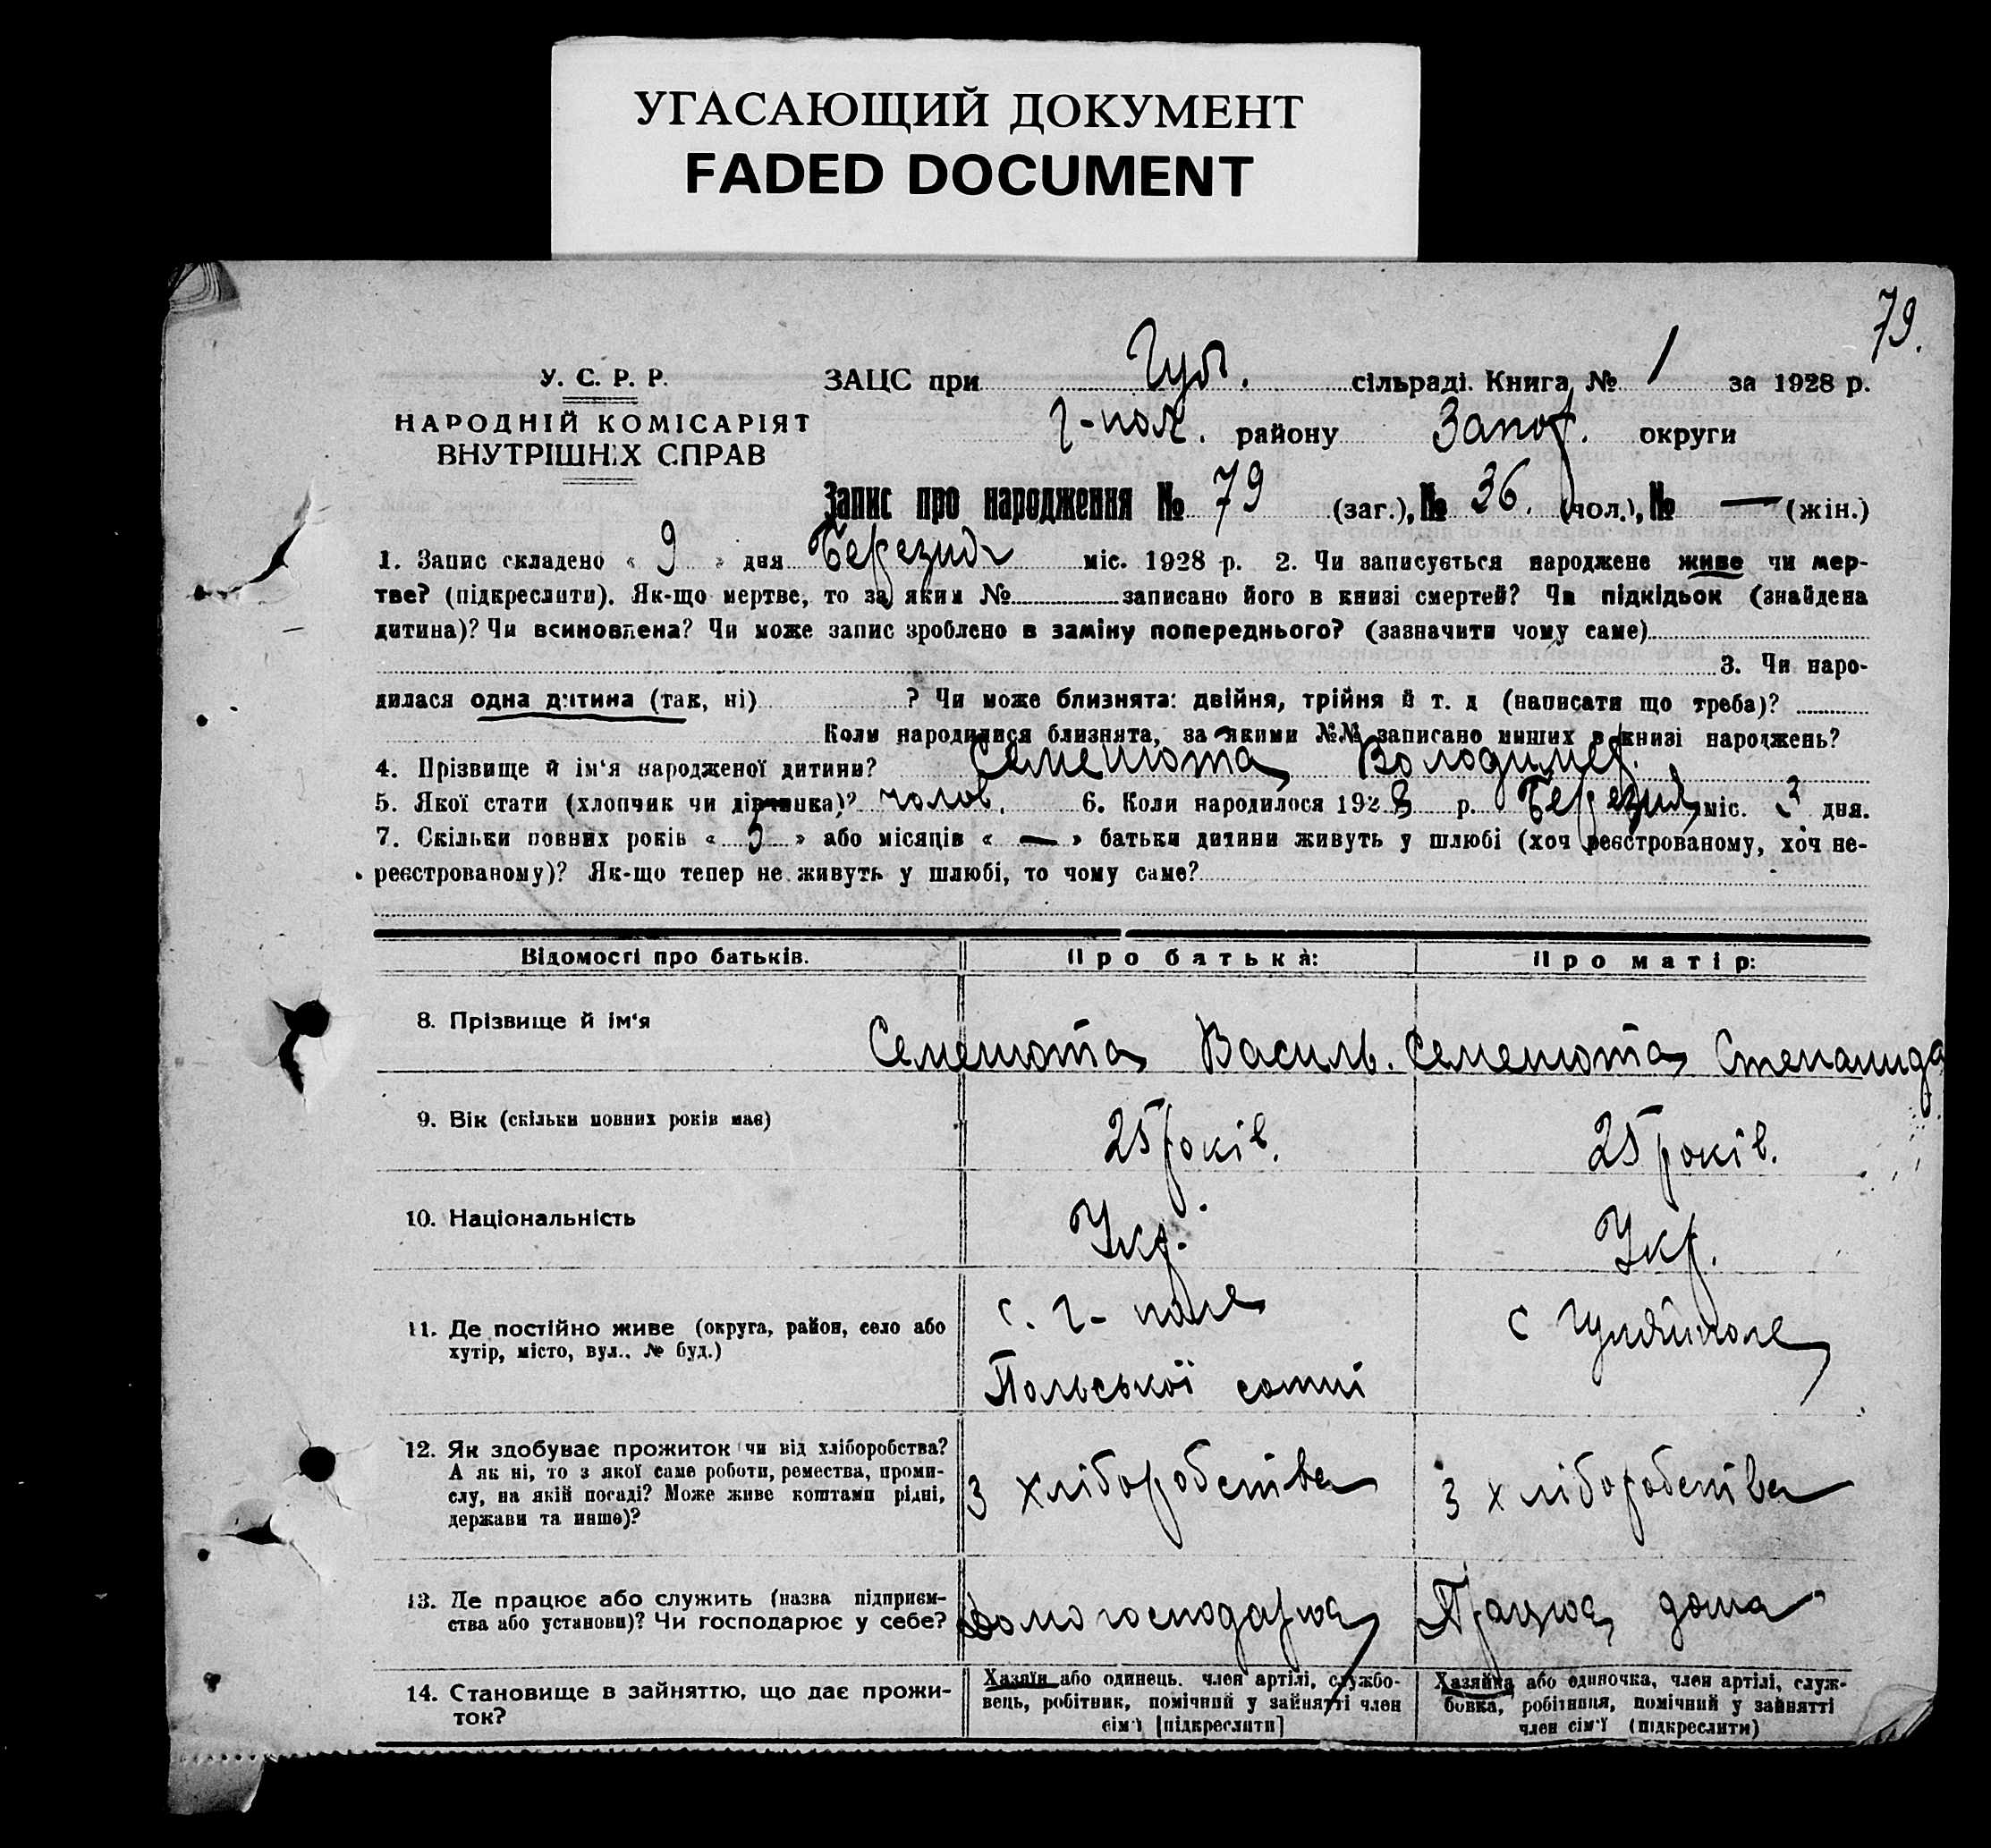 УГАСАЮЩИЙ ДОКУМЕНТ
FADED DOCUMENT
79.
У. С. Р. Р.
НАРОДНІЙ КОМІСАРІЯТ
ВНУТРІШНІХ СПРАВ
ЗАЦС при сільраді. Книга № 1 за 1928 р.
г-пол. району Запор. округи
Запис про народження № 79 (заг.), № 36. (чол.), № — (жін.)
1. Запис складено « 9 » дня Березня міс. 1928 р. 2. Чи записується народжене живе чи мер-
тве? (підкреслити). Як-що мертве, то за яким № записано його в книзі смертей? Чи підкідьок (знайдена
дитина)? Чи всиновлена? Чи може запис зроблено в заміну попереднього? (зазначити чому саме)
3. Чи наро-
дилася одна дитина (так, ні) ? Чи може близнята: двійня, трійня й т. д (написати що треба)?
Коли народилися близнята, за якими №№ записано инших в книзі народжень?
4. Прізвище й ім'я народженої дитини? Семенюта Володимер.
5. Якої стати (хлопчик чи дівчинка)? чолов. 6. Коли народилося 1928 р. Березня міс. 3 дня.
7. Скільки повних років « 5 » або місяців « — » батьки дитини живуть у шлюбі (хоч реєстрованому, хоч не-
реєстрованому)? Як-що тепер не живуть у шлюбі, то чому саме?
Відомості про батьків. Про батька: Про матір:
8. Прізвище й ім'я Семенюта Василь. Семенюта Степанида
9. Вік (скільки повних років має) 25 років. 25 років.
10. Національність Укр. Укр.
11. Де постійно живе (округа, район, село або с. г-поле с Гуляйполе
хутір, місто, вул., № буд.)
Польської сотні
12. Як здобуває прожиток чи від хліборобства?
А як ні, то з якої саме роботи, ремества, проми-
слу, на якій посаді? Може живе коштами рідні, з хліборобства з хліборобства
держави та инше)?
13. Де працює або служить (назва підприєм-
ства або установи)? Чи господарює у себе? домогосподарює Працює дома
14. Становище в зайняттю, що дає прожи-
ток?
Хазяїн або одинець, член артілі, службо-
вець, робітник, помічний у зайнятті член
сім'ї [підкреслити]
Хазяйка або одиночка, член артілі, служ-
бовка, робітниця, помічний у зайнятті
член сім'ї (підкреслити)